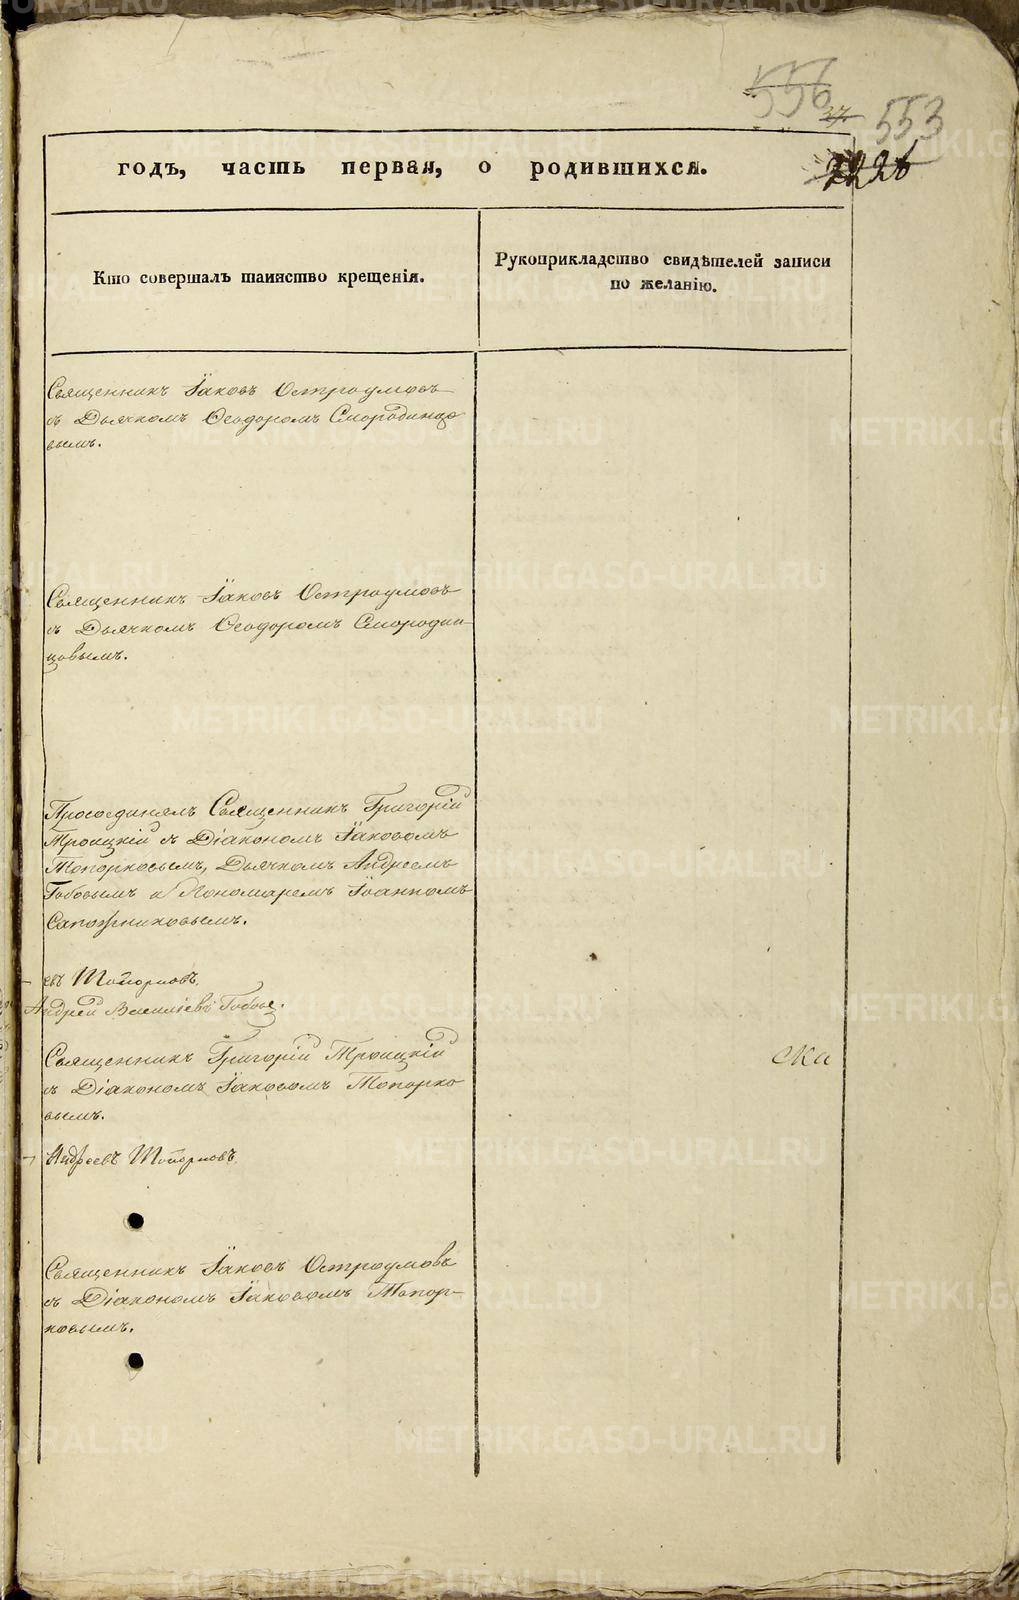 556
37.
553
годъ, часть первая, о родившихся.
Кто совершалъ таинство крещенія.
Рукоприкладство свидѣтелей записи
по желанію.
Священникъ Іаковъ Остроумовъ
съ Дьячкомъ Ѳеодоромъ Смородинцо
вымъ.
Священникъ Іаковъ Остроумовъ
съ Дьячкомъ Ѳеодоромъ Смородин-
цовымъ.
Присоединялъ Священникъ Григорій
Троицкій съ Діакономъ Іаковомъ
Топорковымъ, Дьячкомъ Андреемъ
и Пономаремъ Іоанномъ
Сапожниковымъ.
евъ Топорковъ.
Андрей Васильевъ
Священникъ Григорій Троицкій
съ Діакономъ Іаковомъ Топорко
вымъ.
Андреевъ Топорковъ
ска
Священникъ Іаковъ Остроумовъ
съ Діакономъ Іаковомъ Топор-
ковымъ.
METRIKI.GASO-URAL.RU